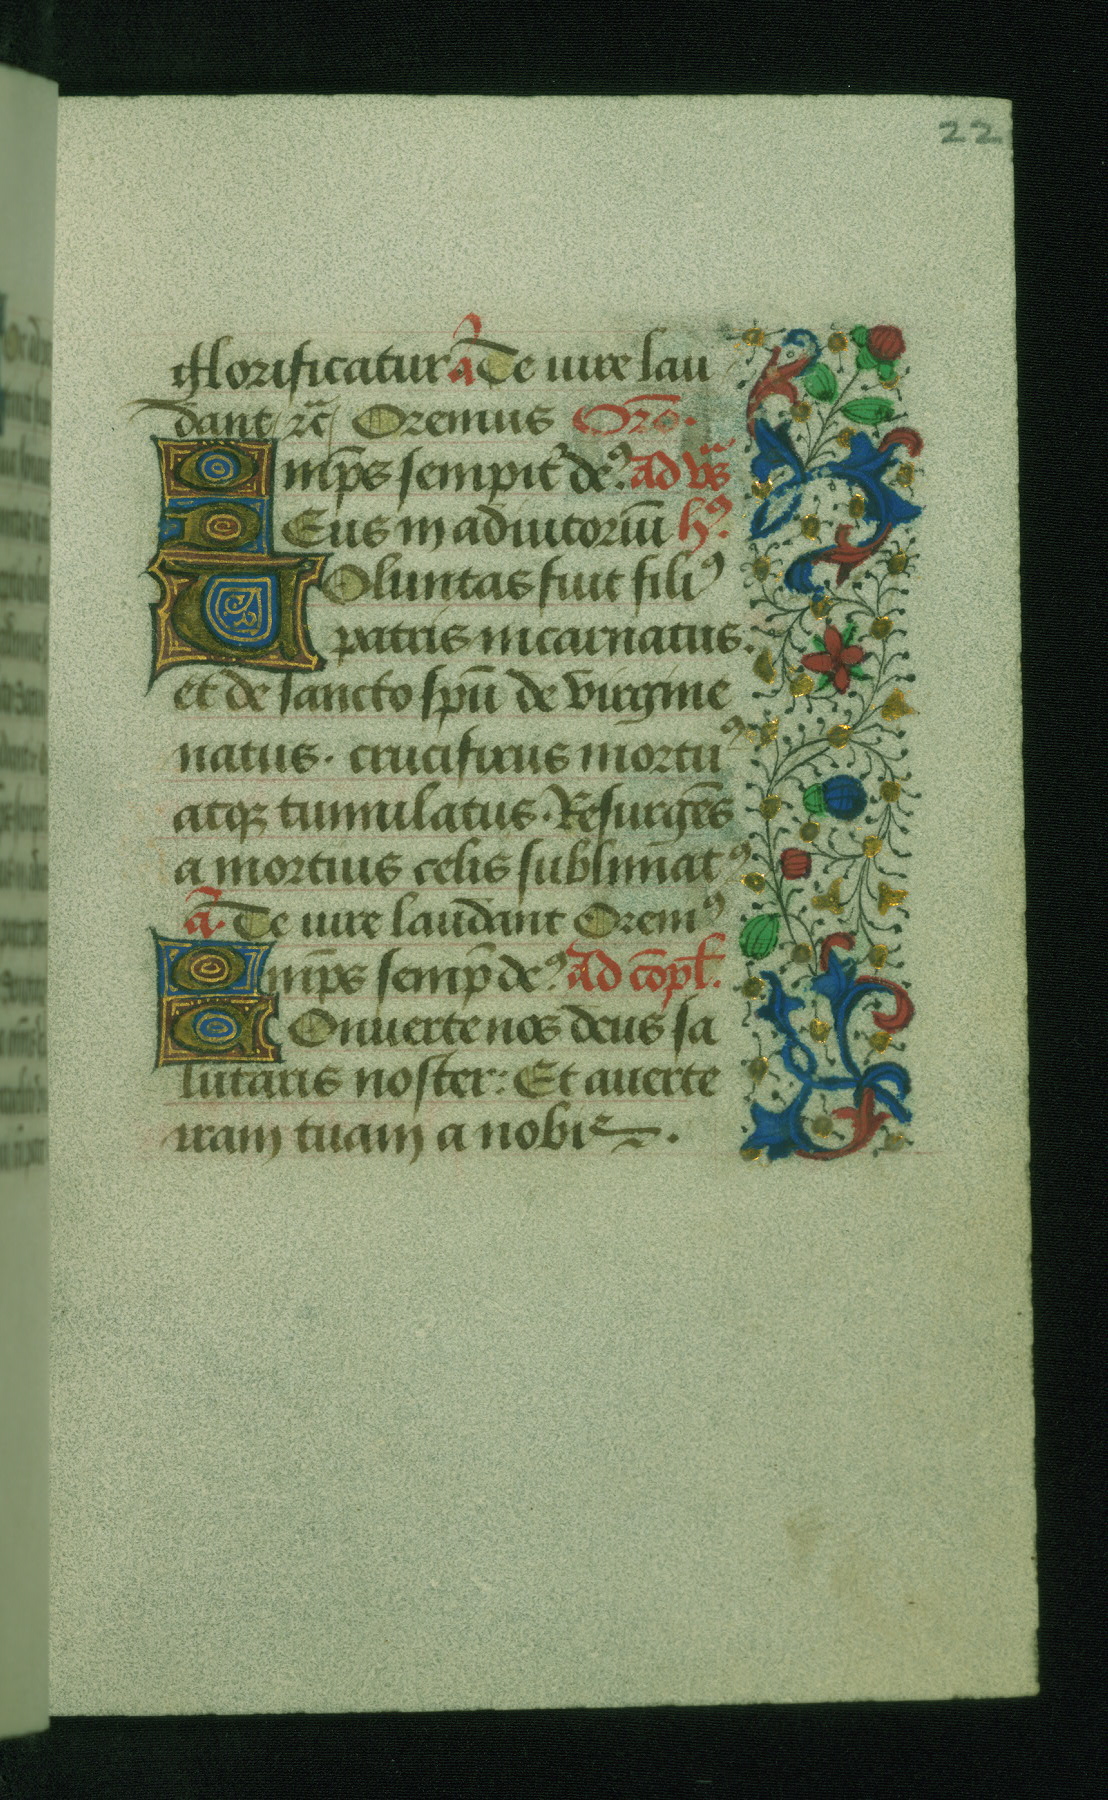 22
glorificatur a̅ Te iure lau
dant ⁊c̅ Oremus Or̅o.
Omp̅s sempit̉ deꝰ. ad vs̅
DEus in adiutoriu̅ hꝰ.
Uoluntas fuit filiꝰ
patris incarnatus.
et de sancto spu̅ de virgine
natus. crucifixus mortuꝰ
atqꝫ tumulatus. Resurge̅s
a mortuis celis sublimatꝰ
a̅. Te iure laudant Oremꝰ
Omp̅s semp̅ deꝰ. Ad co̅pl̅.
COnuerte nos deus sa
lutaris noster: Et auerte
iram tuam a nobis.